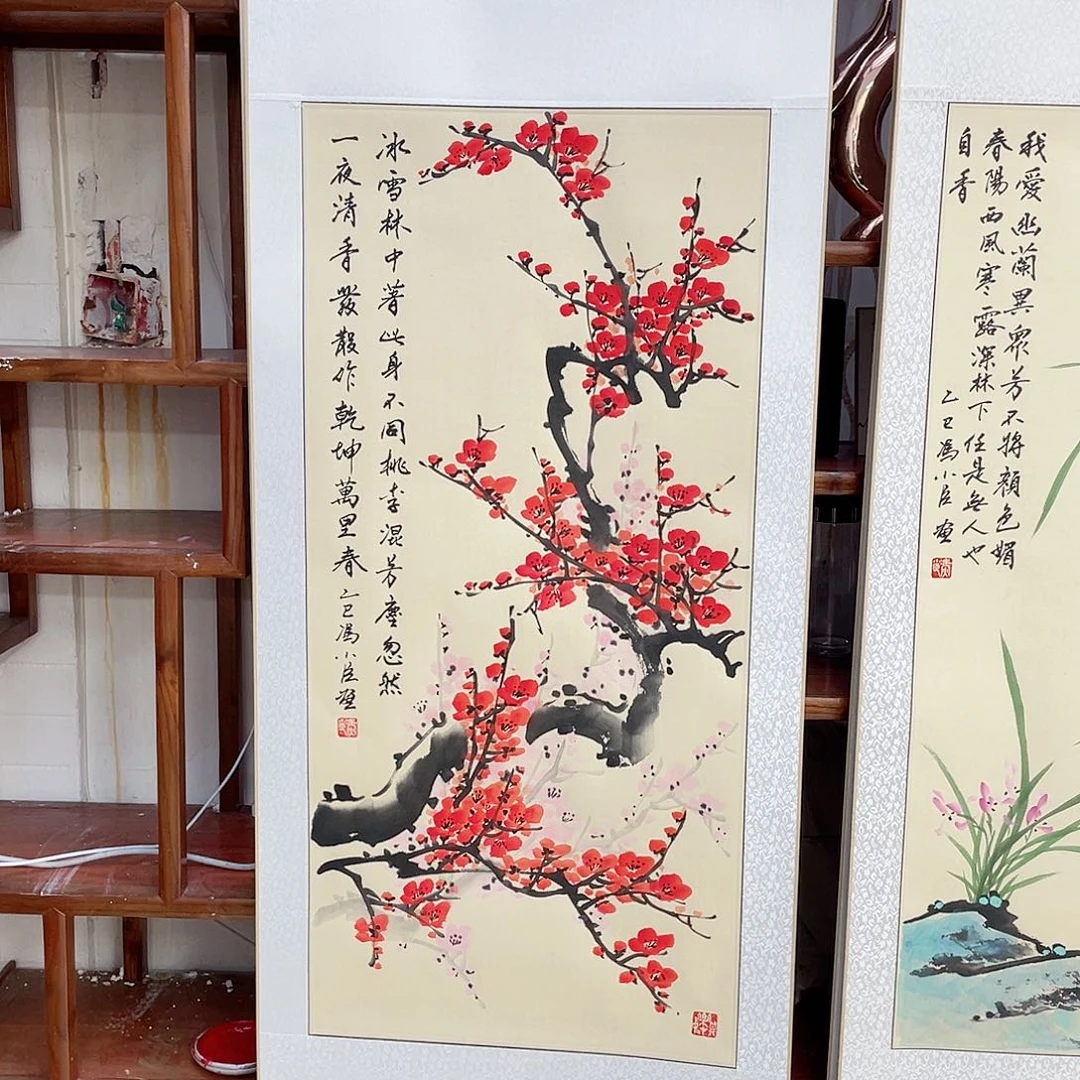 冰雪林中著此身不同桃李混芳塵忽然
一夜清香發散作乾坤萬里春 乙巳馮小臣畫
我愛幽蘭異眾芳不將顏色媚
春陽西風寒露深林下任是無人也
自香
乙巳馮小臣畫